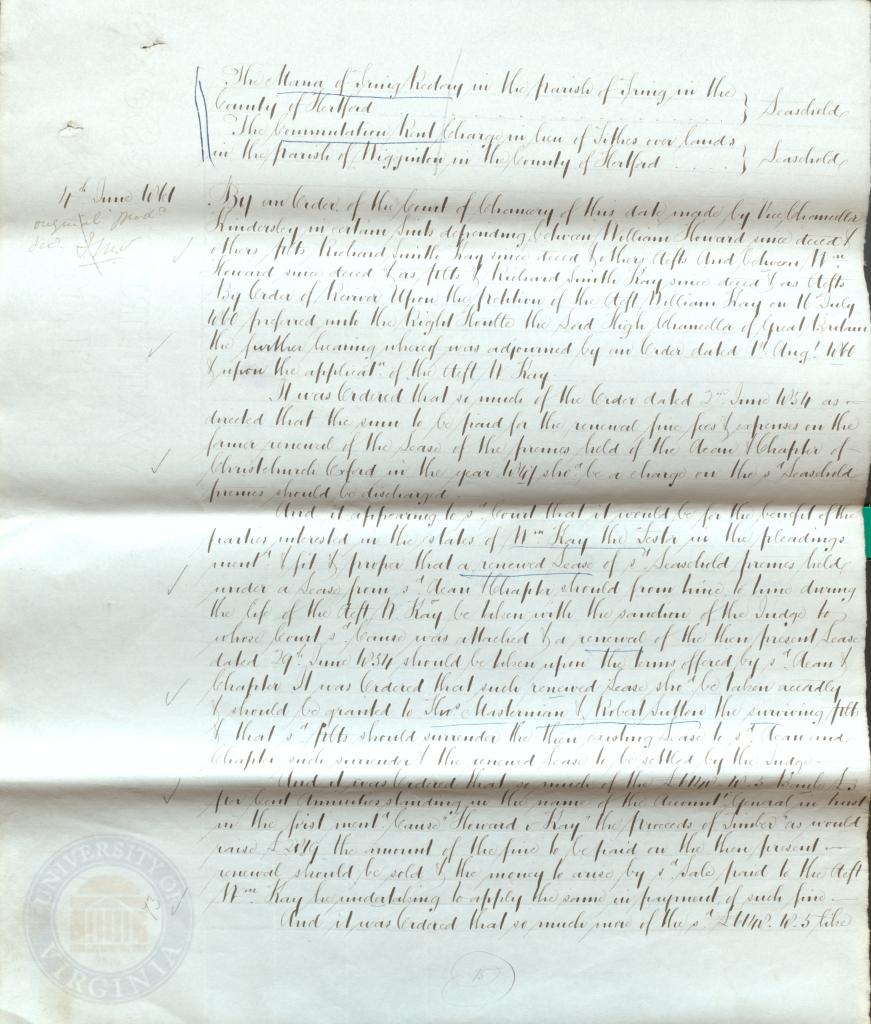 The Manor of Tring Rectory in the parish of Tring in the
County of Hertford } Leasehold
The Commutation Rent Charge in lieu of Tithes over lands
in the parish of Wigginton in the County of Hertford } Leasehold
4th June 1861
original prodd
By an Order of the Court of Chancery of this date made by Vice Chancellor
Kindersley in certain Suits depending between William Howard since deced &
others plts Richard Smith Kay since deced & others defts And between Wm
Howard since deced & as plts & Richard Smith Kay since deced & as defts
By Order of Revivor Upon the petition of the deft William Kay on July
1860 preferred unto the Right Honble the Lord High Chancellor of Great Britain
the further hearing whereof was adjourned by an Order dated 1st Augt 1860
& upon the applicatn of the deft W Kay
It was Ordered that so much of the Order dated 2nd June 1854 as
directed that the sum to be paid for the renewal fine fees & expenses on the
former renewal of the Lease of the premes held of the Dean & Chapter of
Christchurch Oxford in the year shod be a charge on the sd Leasehold
premes should be discharged
And it appearing to sd Court that it would be for the benefit of the
parties interested in the estates of Wm Kay the Testor in the pleadings
mentd & fit & proper that a renewed Lease of sd Leasehold premes held
under a Lease from sd Dean & Chapter should from time to time during
the life of the deft W Kay be taken with the sanction of the Judge to
whose Court sd Cause was attached & a renewal of the then present Lease
dated 29th June 1854 should be taken upon the terms offered by sd Dean &
Chapter It was Ordered that such renewed Lease shod be taken accordly
& should be granted to Thos Masterman & Robert Sutton the surviving plts
& that sd plts should surrender the then existing Lease to sd Dean and
Chapter such surrender & the renewed Lease to be settled by the Judge
And it was Ordered that so much of the Bank £3
per Cent Annuities standing in the name of the Accountt General in trust
in the first mentd Cause "Howard v Kay" the proceeds of Timber" as would
raise the amount of the fine to be paid on the then present
renewal should be sold & the money to arise by sd Sale paid to the deft
Wm Kay he undertaking to apply the same in payment of such fine
And it was Ordered that so much more of the sd like
15
UNIVERSITY OF VIRGINIA